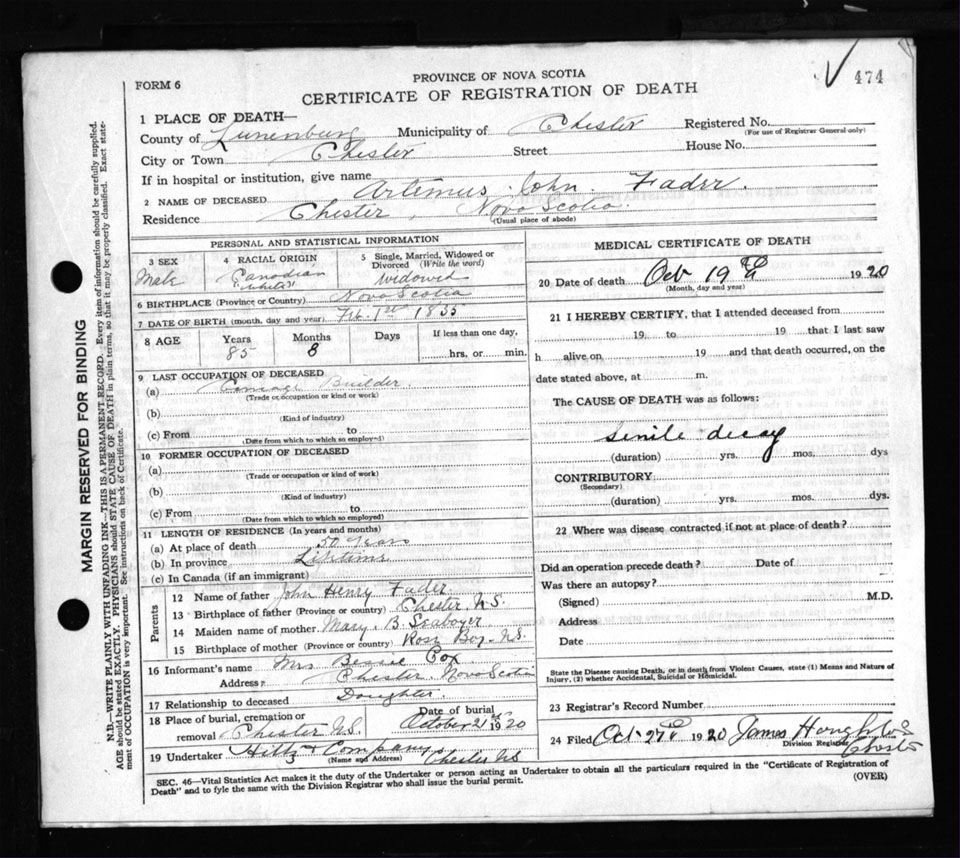 FORM 6
PROVINCE OF NOVA SCOTIA
474
CERTIFICATE OF REGISTRATION OF DEATH
1 PLACE OF DEATH—
County of Lunenburg Municipality of Chester Registered No.
(For use of Registrar General only)
City or Town Chester Street House No.
If in hospital or institution, give name
2 NAME OF DECEASED Artimus John Fader.
Residence Chester, Nova Scotia.
(Usual place of abode)
PERSONAL AND STATISTICAL INFORMATION
3 SEX 4 RACIAL ORIGIN 5 Single, Married, Widowed or Divorced (Write the word)
Male Canadian (White) Widowed
6 BIRTHPLACE (Province or Country) Nova Scotia
7 DATE OF BIRTH (month, day and year) Feb. 1st 1835
8 AGE Years Months Days If less than one day,
85 8 hrs. or min.
9 LAST OCCUPATION OF DECEASED
(a) Carriage Builder.
(Trade or occupation or kind or work)
(b)
(Kind of industry)
(c) From to
(Date from which to which so employed)
10 FORMER OCCUPATION OF DECEASED
(a)
(Trade or occupation or kind of work)
(b)
(Kind of industry)
(c) From to
(Date from which to which so employed)
11 LENGTH OF RESIDENCE (In years and months)
(a) At place of death 50 Years
(b) In province Lifetime
(c) In Canada (if an immigrant)
Parents
12 Name of father John Henry Fader
13 Birthplace of father (Province or country) Chester N.S.
14 Maiden name of mother Mary. B. Seaboyer
15 Birthplace of mother (Province or country) Rose Bay. N.S.
16 Informant's name Mrs Bessie Cox.
Address: Chester. Nova Scotia
17 Relationship to deceased Daughter.
18 Place of burial, cremation or removal Chester N.S. Date of burial October 21st 1920
19 Undertaker Hilts & Company Chester N.S.
(Name and Address)
MEDICAL CERTIFICATE OF DEATH
20 Date of death Oct 19th 1920
(Month, day and year)
21 I HEREBY CERTIFY, that I attended deceased from
19 to 19 that I last saw
h alive on 19 and that death occurred, on the
date stated above, at m.
The CAUSE OF DEATH was as follows:
senile decay
(duration) yrs. mos. dys
CONTRIBUTORY
(Secondary)
(duration) yrs. mos. dys.
22 Where was disease contracted if not at place of death?
Did an operation precede death? Date of
Was there an autopsy?
(Signed) M.D.
Address
Date
State the Disease causing Death, or in death from Violent Causes, state (1) Means and Nature of
Injury, (2) whether Accidental, Suicidal or Homicidal.
23 Registrar's Record Number
24 Filed Oct. 27th 1920 James
Division Registrar
Chester
SEC. 46—Vital Statistics Act makes it the duty of the Undertaker or person acting as Undertaker to obtain all the particulars required in the "Certificate of Registration of
Death" and to fyle the same with the Division Registrar who shall issue the burial permit. (OVER)
MARGIN RESERVED FOR BINDING
N.B.—WRITE PLAINLY WITH UNFADING INK—THIS IS A PERMANENT RECORD. Every item of information should be carefully supplied.
AGE should be stated EXACTLY. PHYSICIANS should STATE CAUSE OF DEATH in plain terms, so that it may be properly classified. Exact state-
ment of OCCUPATION is very important. See instructions on back of Certificate.